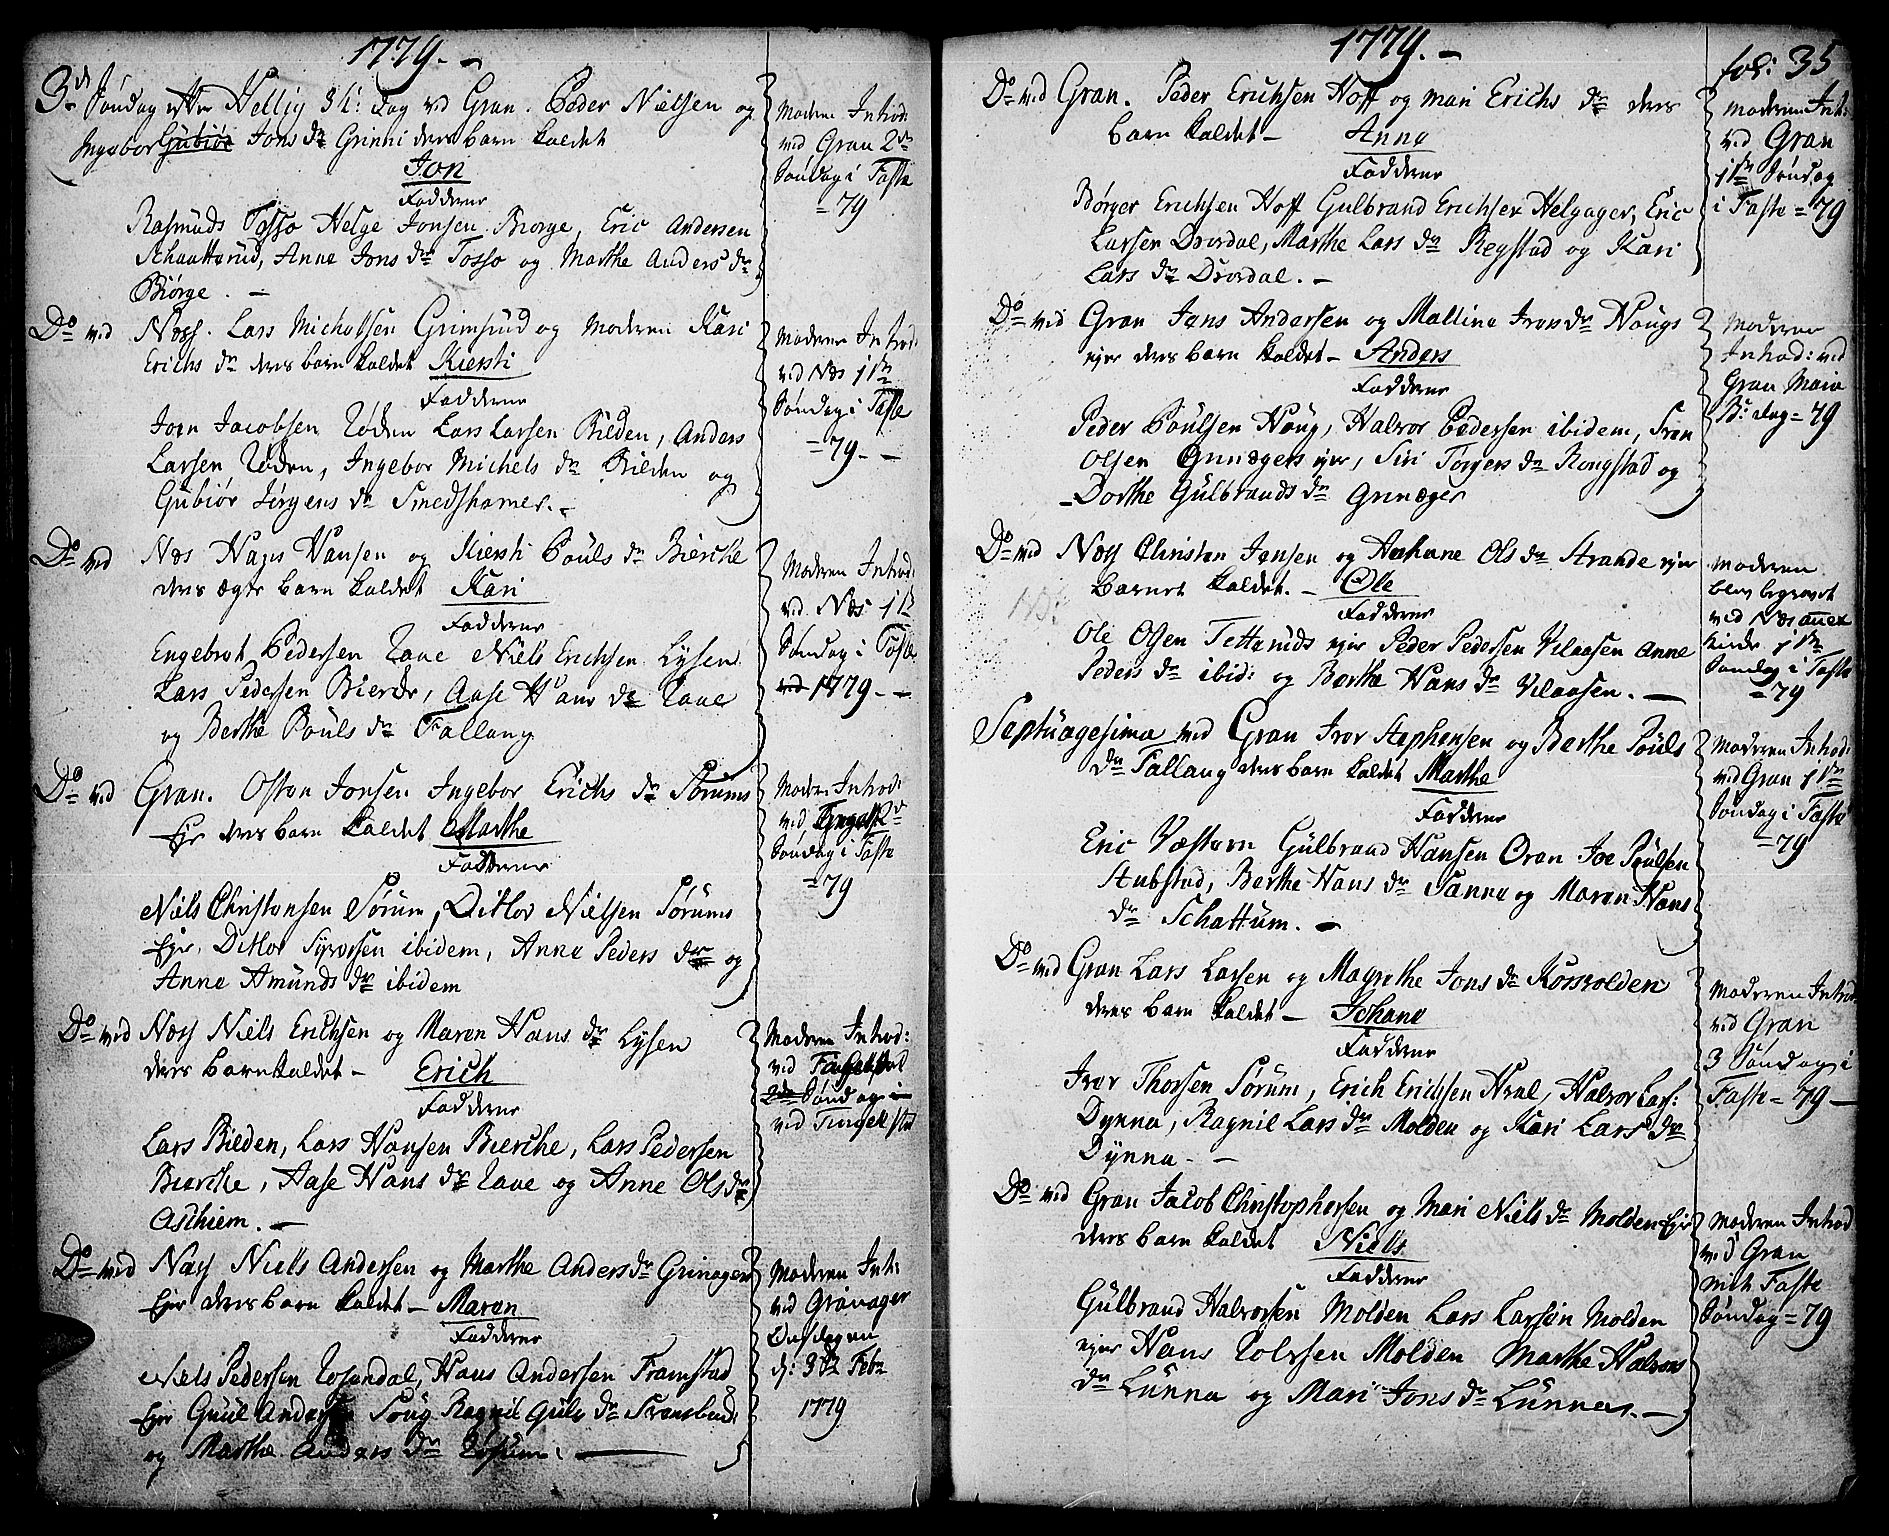 1779. -
3de Søndag efter Hellig 3 K: Dag vid Gran. Peder Nielsen og
Ingebor Gubiør Jons dr Grinni deres barn kaldet
Jon
Fadderne
Rasmuds Tosso Helge Jonsen Biorge, Eric Andersen
Schaattsrud, Anne Jons dr Tosso og Marthe Anders dr
Biørge. -
Moderen Introd:
vid Gran 2de
Søndag i Faste
= 79
Do vid Næss. Lars Michelsen Grimsrud og Moderen Kari
Erichs dr deres barn kaldet Kiersti
Fadderne
Joen Jacobsen Røden Lars Larsen Bilden, Anders
Larsen Røden, Ingebor Michels dr Bilden og
Gubiør Jørgens dr Smedshamer. -
Moderen Introd:
vid Næs 1ste
Søndag i Faste
= 79 - -
Do vid Næs Hans Hansen og Kiersti Pouls dr Bierche
deres ægte barn kaldet Kari
Fadderne
Engebret Pedersen Raue Niels Erichsen Lysen
Lars Pedersen Bierche, Aase Hans dr Raue
og Berthe Pouls dr Fallang
Moderen Introd:
vid Næs 1ste
Søndag i Faste
vid 1779. -
Do vid Gran. Osten Jonsen Ingebor Erichs dr Sørums
Eje deres barn kaldet Marthe
Fadderne
Niels Christensen Sørum, Ditlov Nielsen Sørums
Eje, Ditlov Syversen ibidem, Anne Peders dr og
Anne Amunds dr ibidem
Moderen Introd:
vid Tingelst 2de
Søndag i Faste
= 79
Do vid Næss Niels Erichsen og Maren Hans dr Lysen
deres barn kaldet - Erich
Fadderne
Lars Bilden, Lars Hansen Bierche, Lars Pedersen
Bierche, Aase Hans dr Raue og Anne Ols dr
Aschiem. -
Moderen Introd:
vid Tingelstad
2den Søndag i
vid Tingelstad
Do vid Næss Niels Andersen og Marthe Anders dr Grinager
Eje deres barn kaldet - Maren
Fadderne
Niels Pedersen Rosendal, Hans Andersen Framstad
Eje Guul Andersen Soug Ragnil Gulv dr
og Marthe Anders dr
Moderen Int:
vid Granager
Onsdagen
d: 3de Febr
1779
1779. -
fol: 35
Do vid Gran. Peder Erichsen Hoff og Mari Erichs dr deres
barn kaldet - Anne
Fadderne
Børger Erichsen Hoff Gulbrand Erichsen Helgager, Eric
Larsen Dvordal, Marthe Lars dr Regstad og Kari
Lars dr Dvordal. -
Moderen Int:
vid Gran
1ste Søndag
i Faste = 79
Do vid Gran Jens Andersen og Malline Ivers dr Hougs
ejer deres barn kaldet - Anders
Fadderne
Peder Poulsen Houg, Halvor Pedersen ibidem, Sven
Olsen Grinagers ejer, Siri Torgers dr Rongstad og
Dorthe Gulbrands dr Grinager
Moderen
Introd: vid
Gran Maria
B: dag = 79
Do vid Næss Christen Jensen og Anne Ols dr Strande ejer
barnet kaldet. - Ole
Fadderne
Ole Olsen Tetteruds ejer Peder Pedersen Velaasen Anne
Peders dr ibid: og Berthe Hans dr Velaasen. -
Moderen
blev begravet
vid Næs annex
kirke 1ste
Søndag i Faste
= 79
Septuagesima vid Gran Iver Stephensen og Berthe Pouls
dr Fallang deres barn kaldet Marthe
Fadderne
Eric Væstern Gulbrand Hansen Oren Joe Poulsen
Stubstad, Berthe Hans dr Sanne og Maren Hans
dr Schattum. -
Moderen Introd:
vid Gran 1ste
Søndag i Faste
= 79
Do vid Gran Lars Larsen og Magrethe Jons dr Korsvolden
deres barn kaldet - Johane
Fadderne
Iver Thorsen Sørum, Erich Erichsen Hval, Halvor Lars:
Dynna, Ragnil Lars dr Molden og Kari Lars dr
Dynna. -
Moderen Introd
vid Gran
3 Søndag i
Faste = 79 -
Do vid Gran Jacob Christophersen og Mari Niels dr Molden Eje
deres barn kaldet Niels
Fadderne
Gulbrand Halvorsen Molden Lars Larsen Molden
ejer Hans Tolvsen Molden Marthe Halvors
dr Lunna og Mari Jons dr Lunna. -
Moderen Introd
vid Gran
mit Faste
Søndag = 79